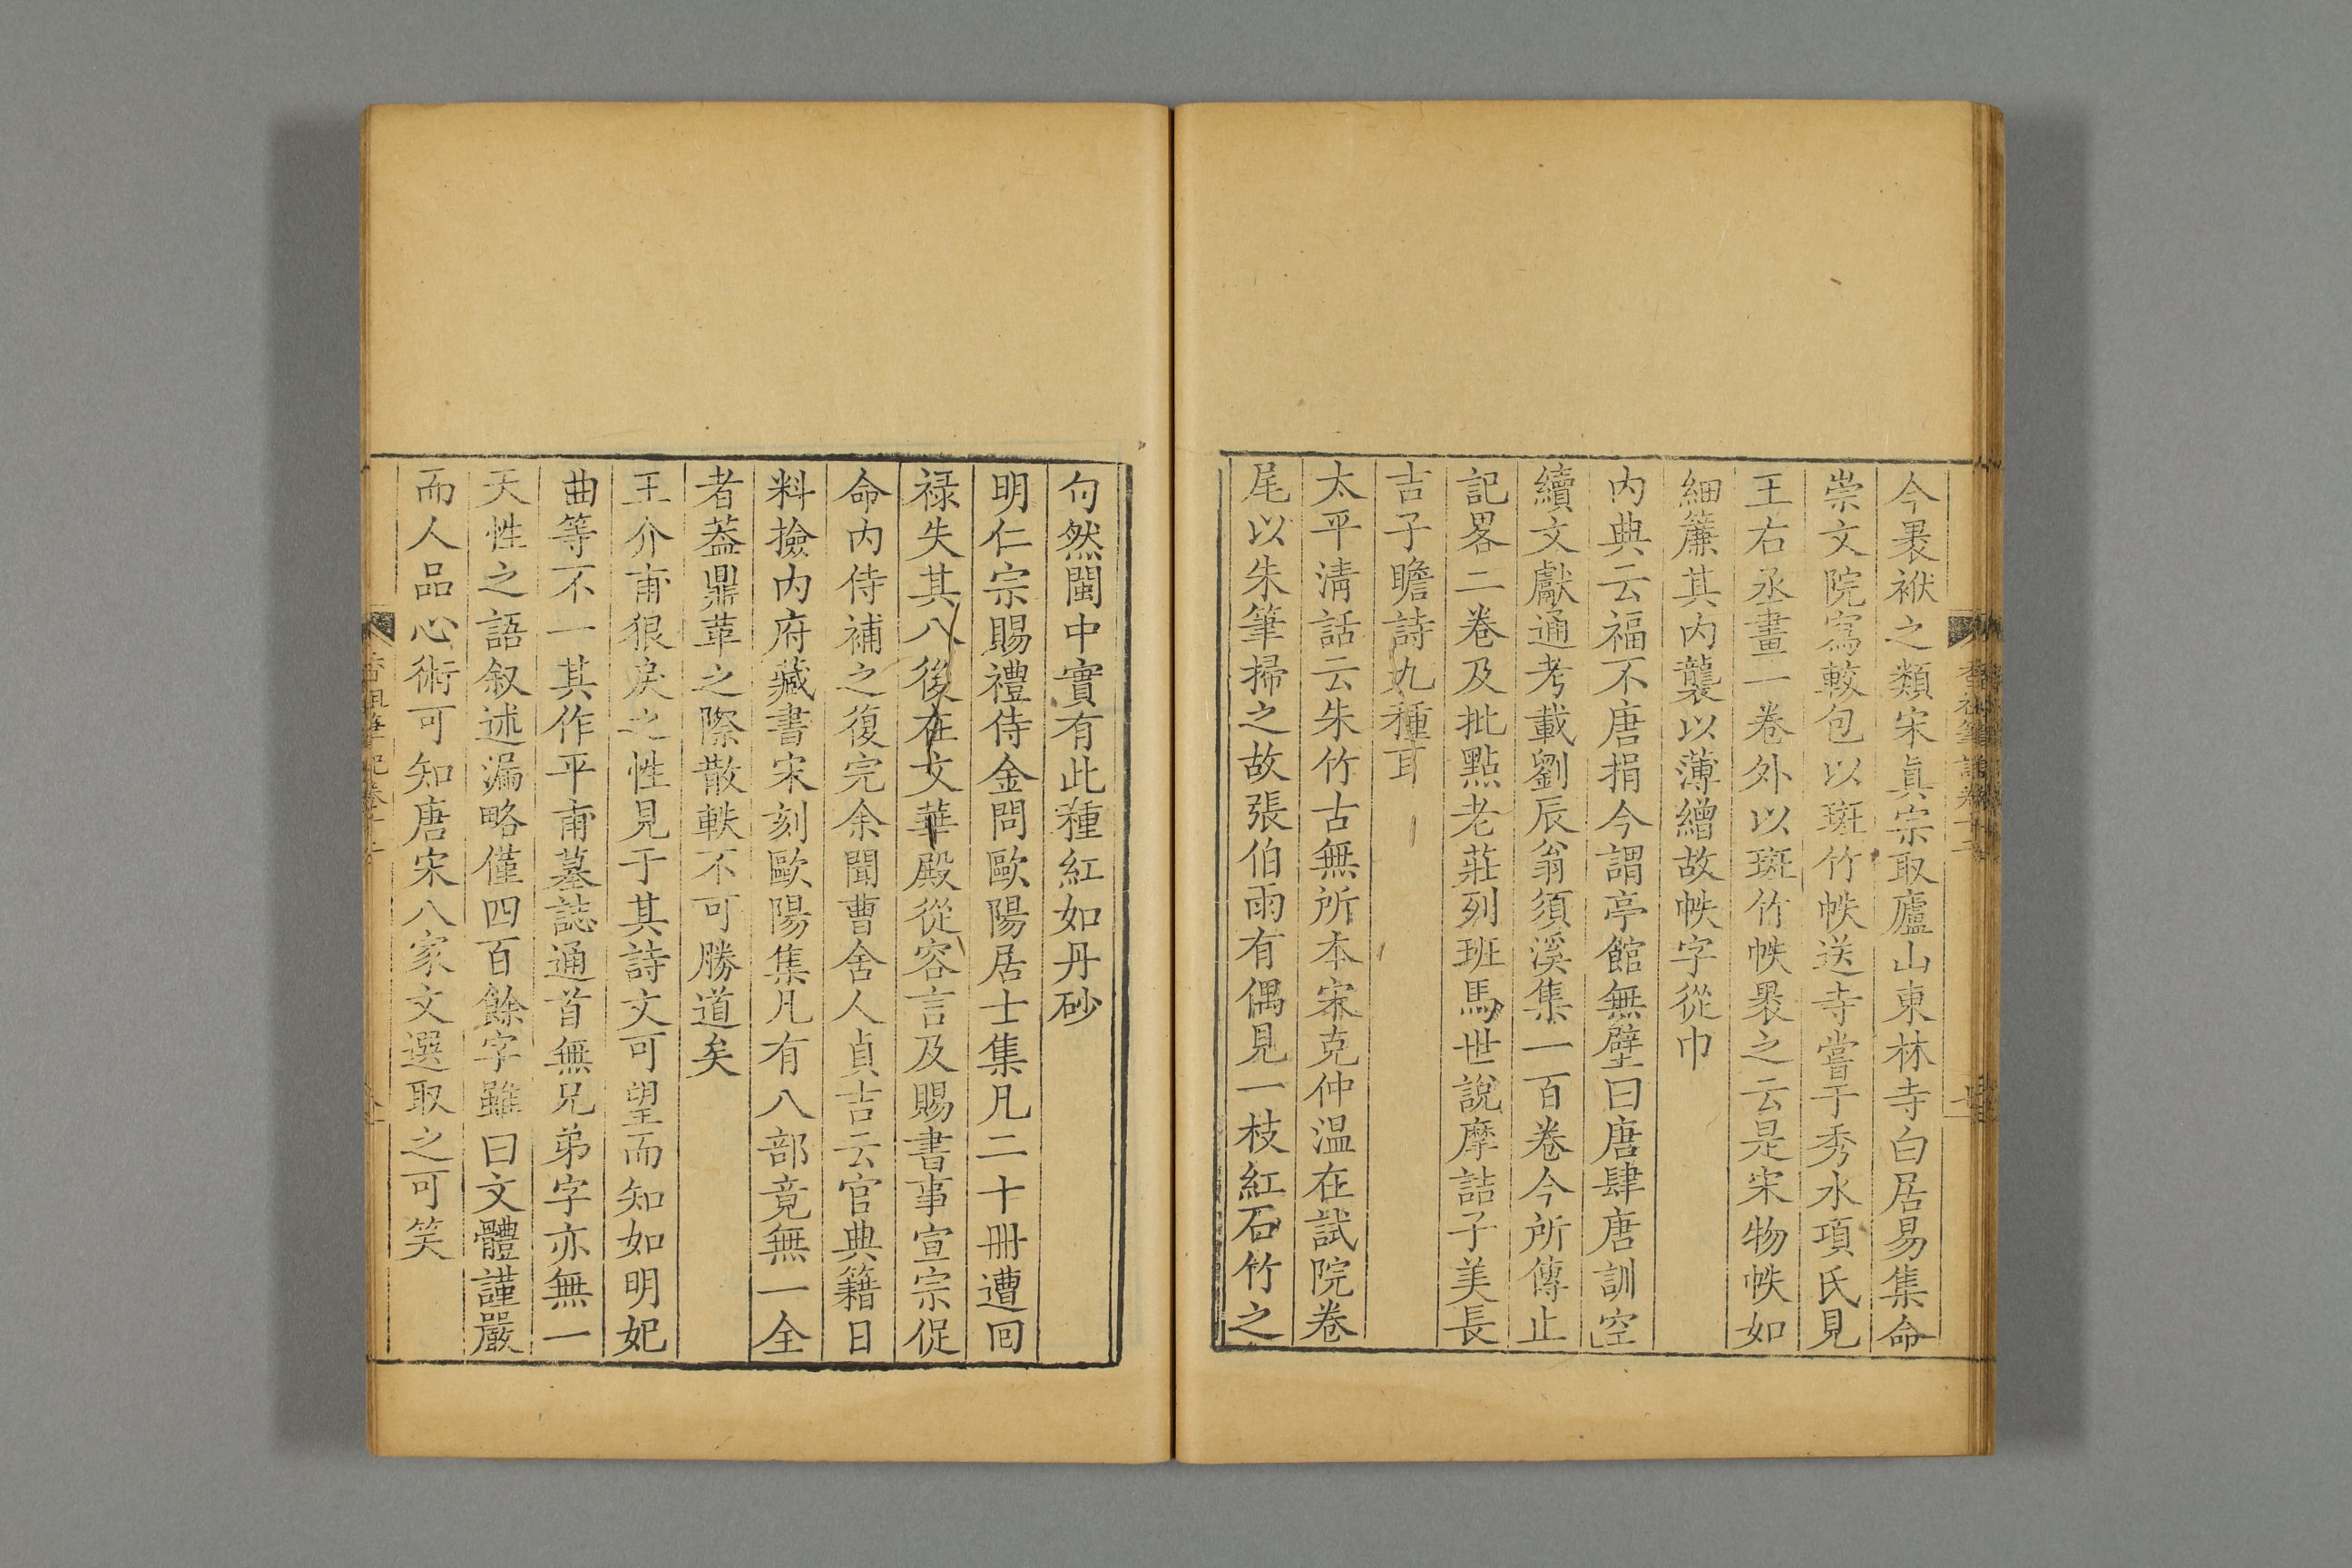 今褁袱之類宋眞宗取廬山東林寺白居易集命
崇文院寫較包以斑竹帙送寺嘗于秀水項氏見
王右丞畫一卷外以斑竹帙褁之云是宋物帙如
細簾其内襲以薄繒故帙字從巾
内典云福不唐捐今謂亭館無壁曰唐肆唐訓空
續文獻通考載劉辰翁須溪集一百卷今所傳止
記畧二卷及批點老莊列班馬世說摩詰子美長
吉子瞻詩九種耳
太平清話云朱竹古無所本宋克仲温在試院卷
尾以朱筆掃之故張伯雨有偶見一枝紅石竹之
句然閩中實有此種紅如丹砂
明仁宗賜禮侍金問歐陽居士集凡二十冊遭回
禄失其八後在文華殿從容言及賜書事宣宗促
命内侍補之復完余聞曹舍人貞吉云官典籍日
料撿内府藏書宋刻歐陽集凡有八部竟無一全
者葢鼎革之際散軼不可勝道矣
王介甫狠戾之性見于其詩文可望而知如明妃
曲等不一其作平甫墓誌通首無兄弟字亦無一
天性之語叙述漏略僅四百餘字雖曰文體謹嚴
而人品心術可知唐宋八家文選取之可笑